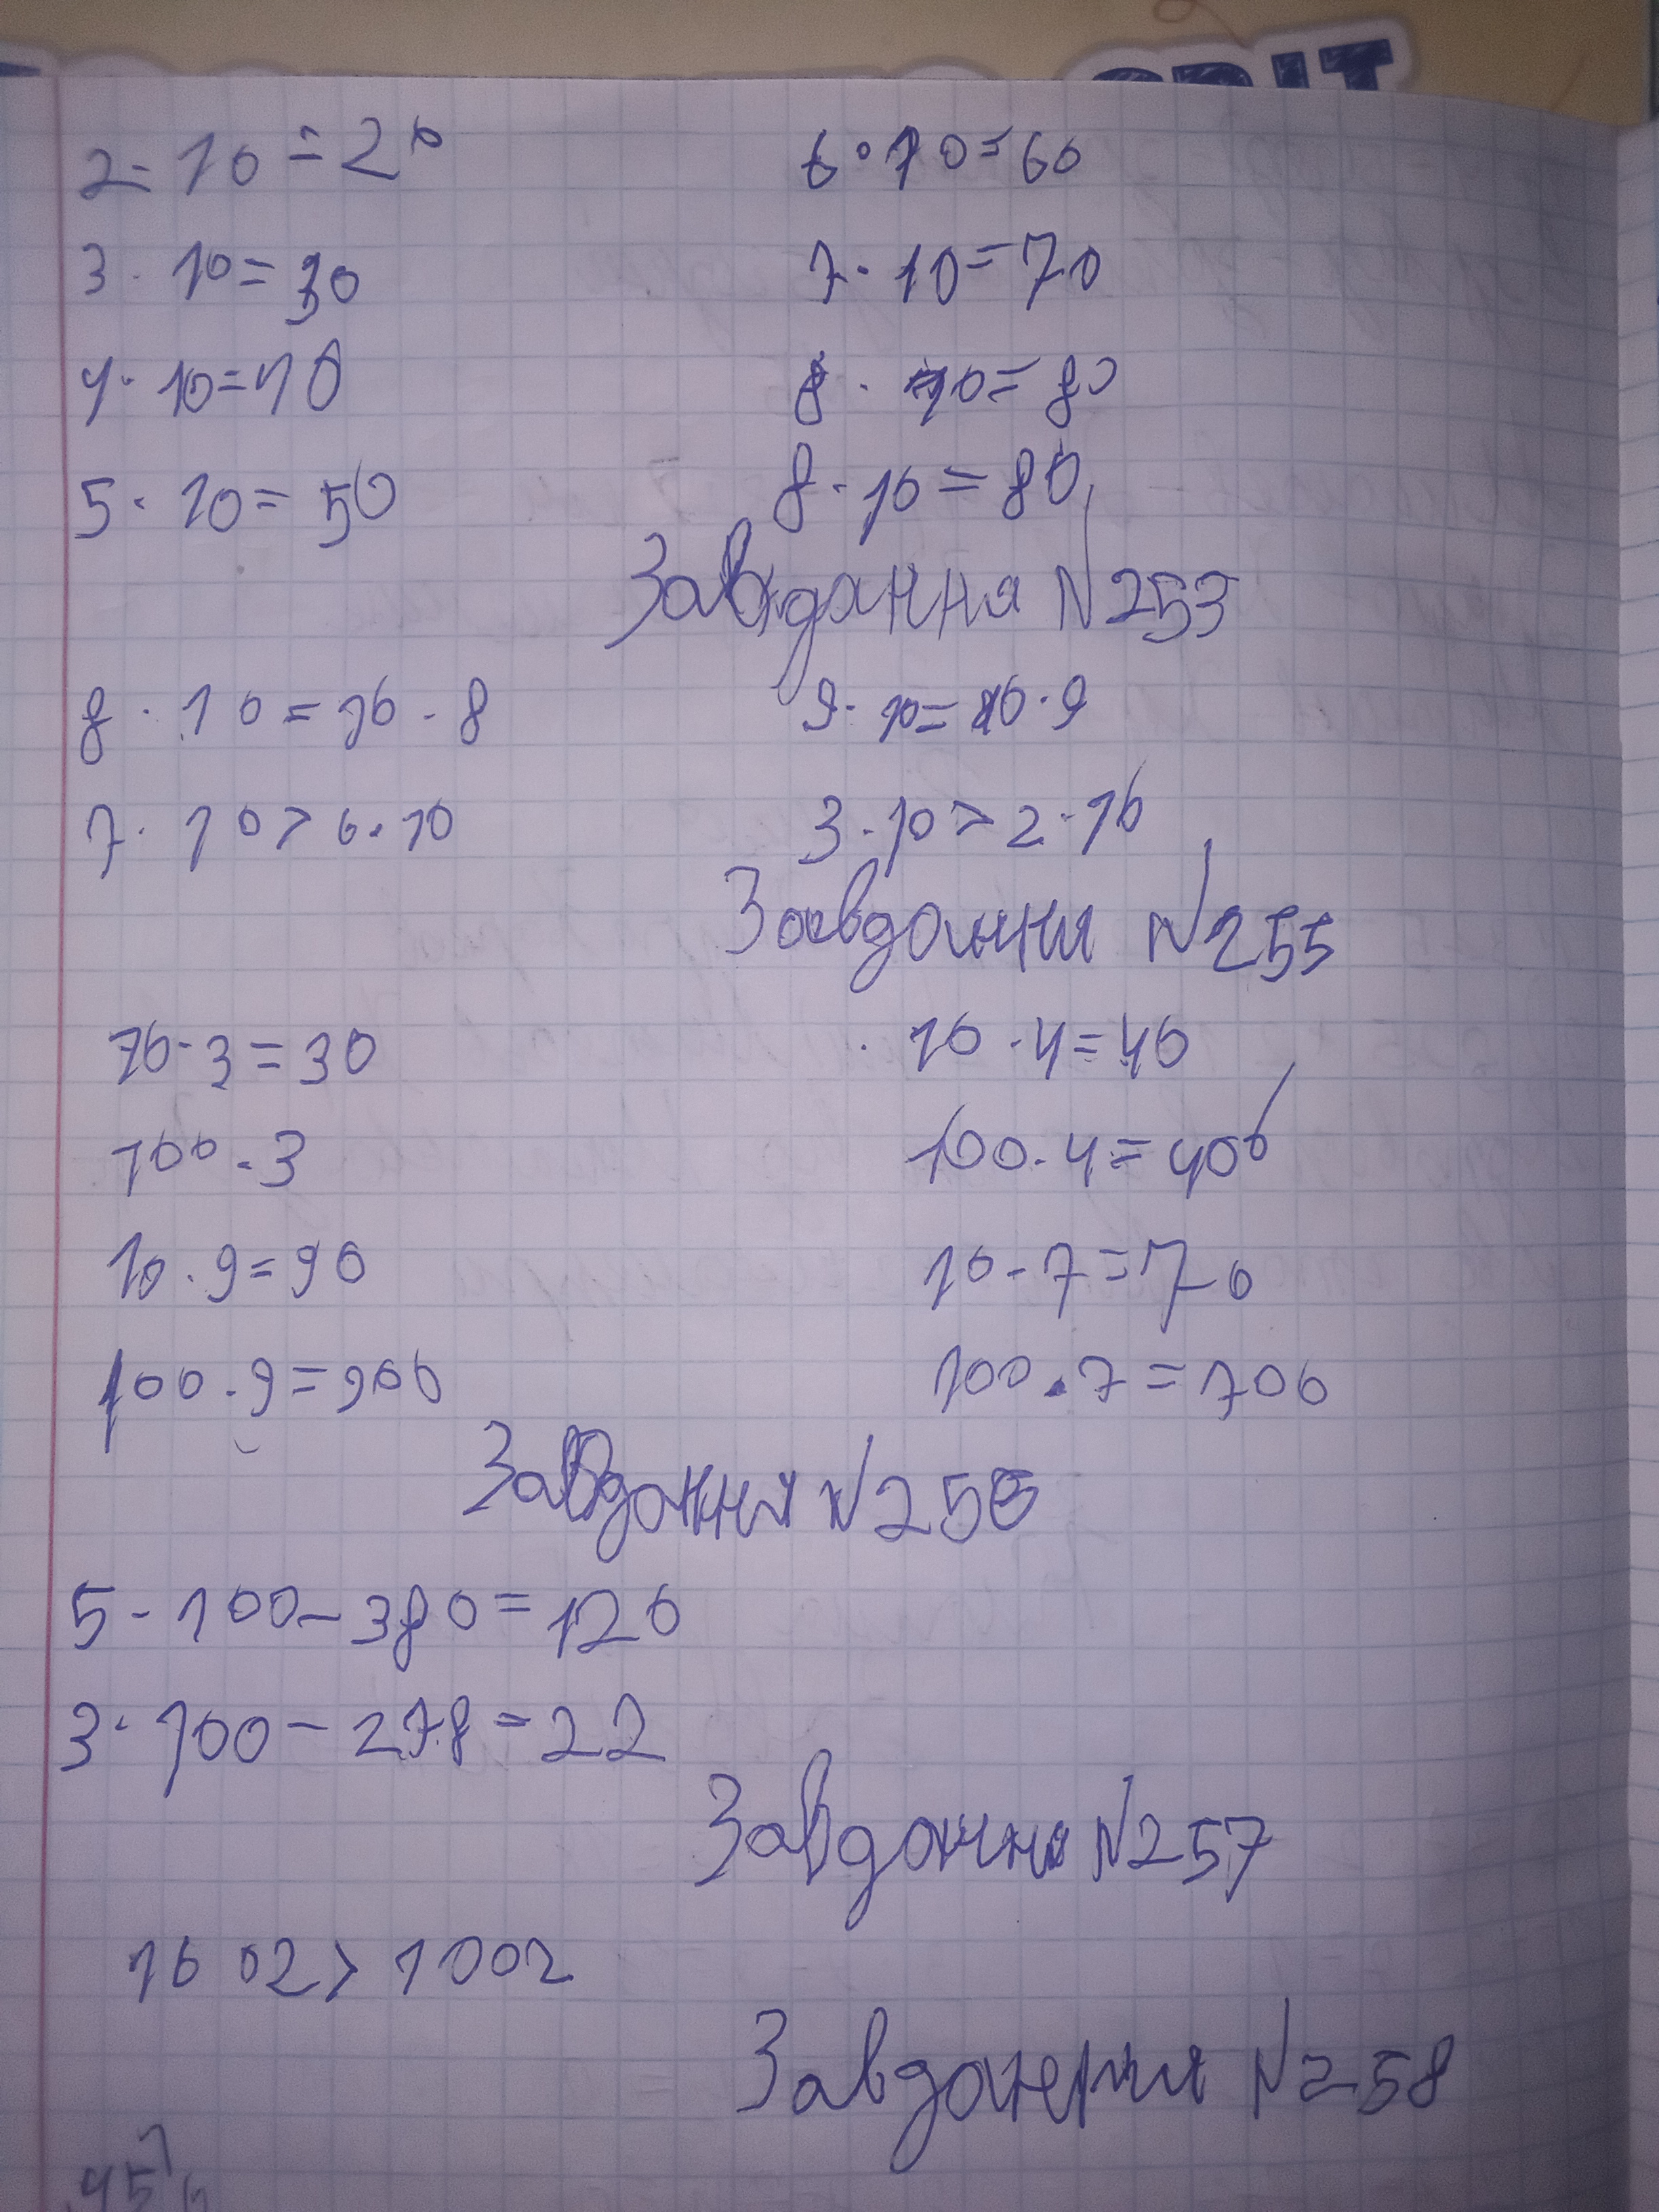 ОВІТ
2 · 10 = 20 6 · 10 = 60
3 · 10 = 30 7 · 10 = 70
4 · 10 = 40 8 · 10 = 80
5 · 10 = 50 8 · 10 = 80
Завдання №253
8 · 10 = 10 · 8 9 · 10 = 10 · 9
7 · 10 > 6 · 10 3 · 10 > 2 · 10
Завдання №255
10 · 3 = 30 10 · 4 = 40
100 · 3 100 · 4 = 400
10 · 9 = 90 10 · 7 = 70
100 · 9 = 900 100 · 7 = 700
Завдання №256
5 · 100 - 380 = 120
3 · 100 - 278 = 22
Завдання №257
10 02 > 1002
Завдання №258